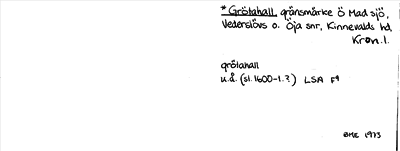 * Grötahall, gränsmärke Ö Mad sjö,
Vederslövs o. Öja snr, Kinnevalds hd,
Kron.l.
grötahall
u.å. (sl. 1600-t.?) LSA F9
BME 1973